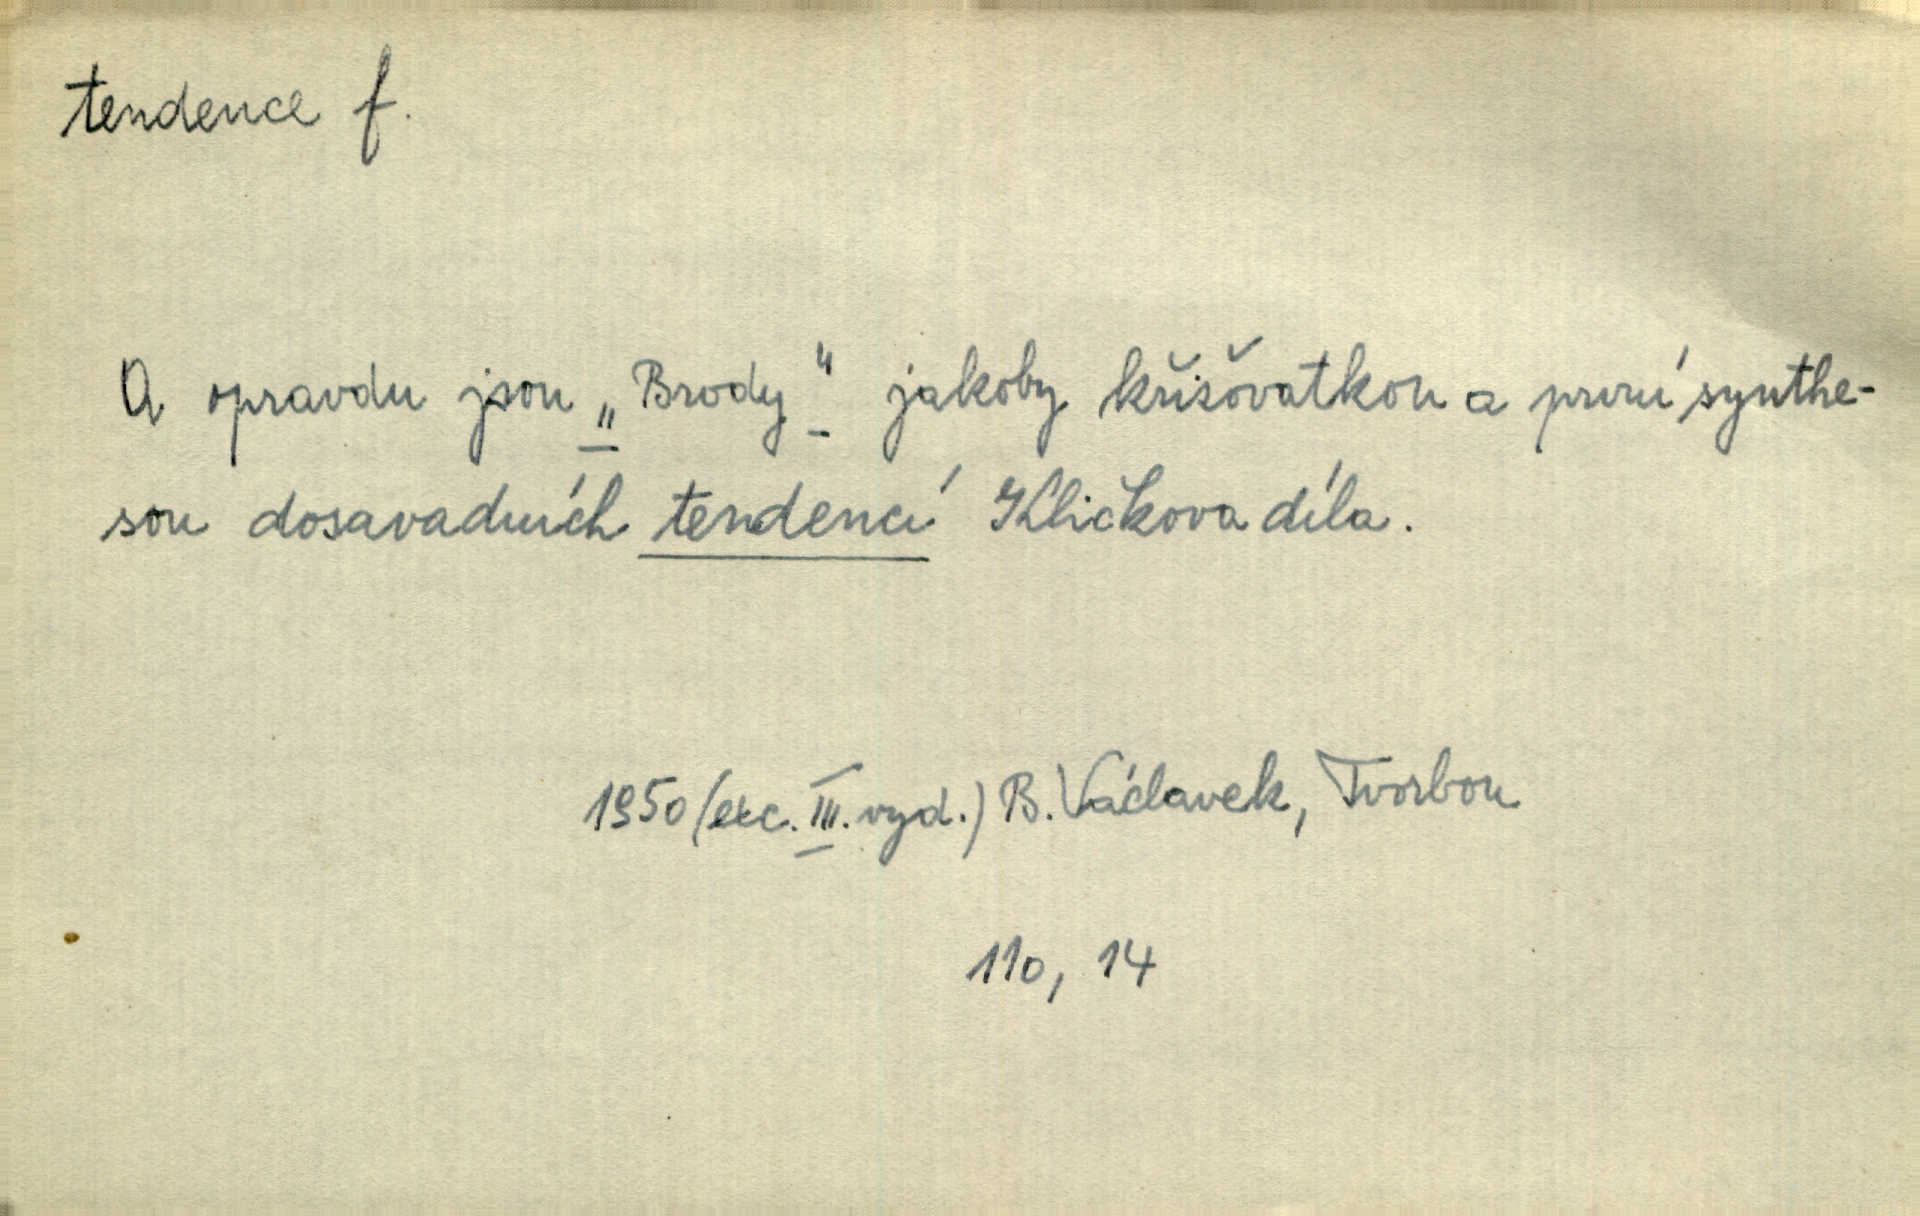 tendence f.
A opravdu jsou „Brody“ jakoby křižovatkou a první synthe-
sou dosavadních tendencí Kličkova díla.
1950 (exc. III. vyd.) B. Václavek, Tvorbou
110, 14